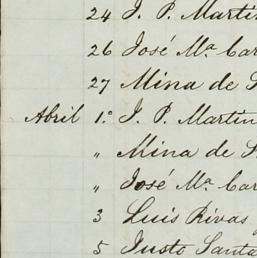 24 J. P. Martin
26 José Mª Car
27 Mina de S
Abril 1.º J. P. Martin
" Mina de S
" José Mª Car
3 Luis Rivas
5 Justo Santa